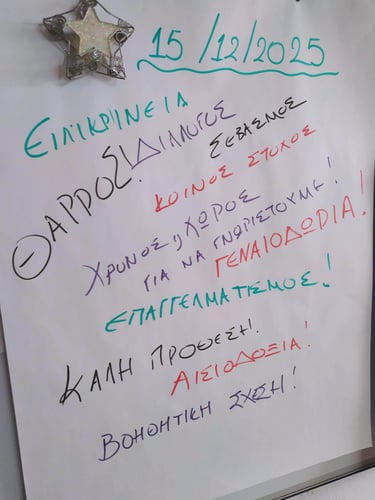 15/12/2025
ΕΙΛΙΚΡΙΝΕΙΑ
ΔΙΑΛΟΓΟΣ
ΣΕΒΑΣΜΟΣ
ΘΑΡΡΟΣ!
ΚΟΙΝΟΣ ΣΤΟΧΟΣ
ΧΡΟΝΟΣ, ΧΩΡΟΣ
ΓΙΑ ΝΑ ΓΝΩΡΙΣΤΟΥΜΕ!
ΓΕΝΑΙΟΔΩΡΙΑ!
ΕΠΑΓΓΕΛΜΑΤΙΣΜΟΣ!
ΚΑΛΗ ΠΡΟΘΕΣΗ!
ΑΙΣΙΟΔΟΞΙΑ!
ΒΟΗΘΗΤΙΚΗ ΣΧΕΣΗ!